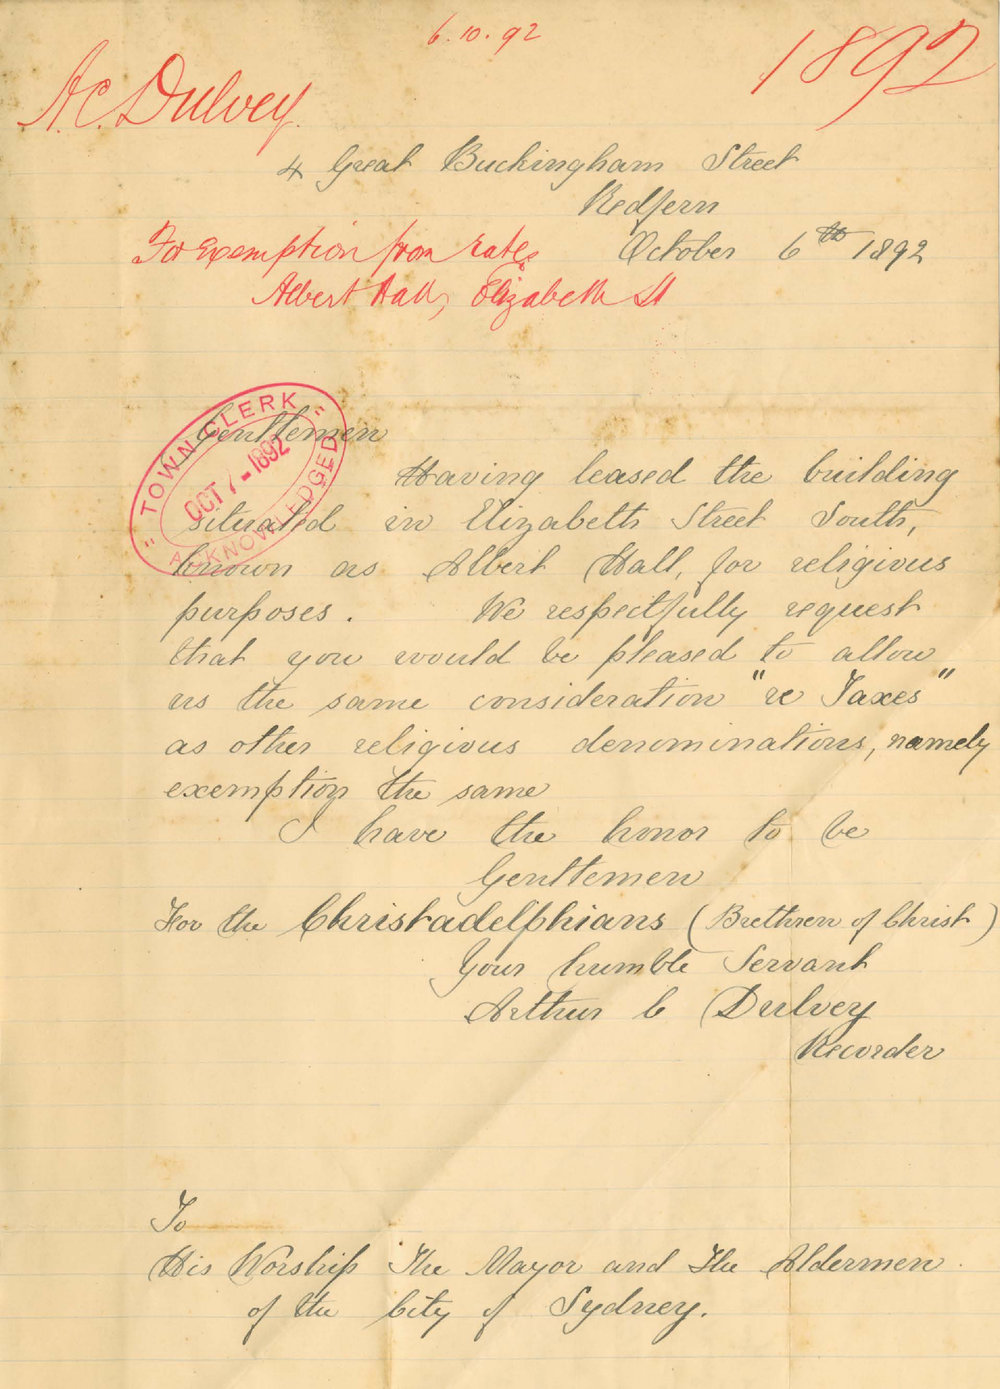 6.10.92
1892
A.C. Dulvey.
4 Great Buckingham Street
Redfern
For Exemption from rates
October 6th 1892
Albert Hall, Elizabeth St
"TOWN CLERK"
OCT 7-1892
ACKNOWLEDGED
Gentlemen
Having leased the building
situated in Elizabeth Street South,
known as Albert Hall, for religious
purposes. We respectfully request
that you would be pleased to allow
us the same consideration "re Taxes"
as other religious denominations, namely
exemption the same
I have the honor to be
Gentlemen
For the Christadelphians (Brethren of Christ)
Your humble Servant
Arthur C Dulvey
Recorder
To
His Worship The Mayor and The Aldermen.
of the City of Sydney.